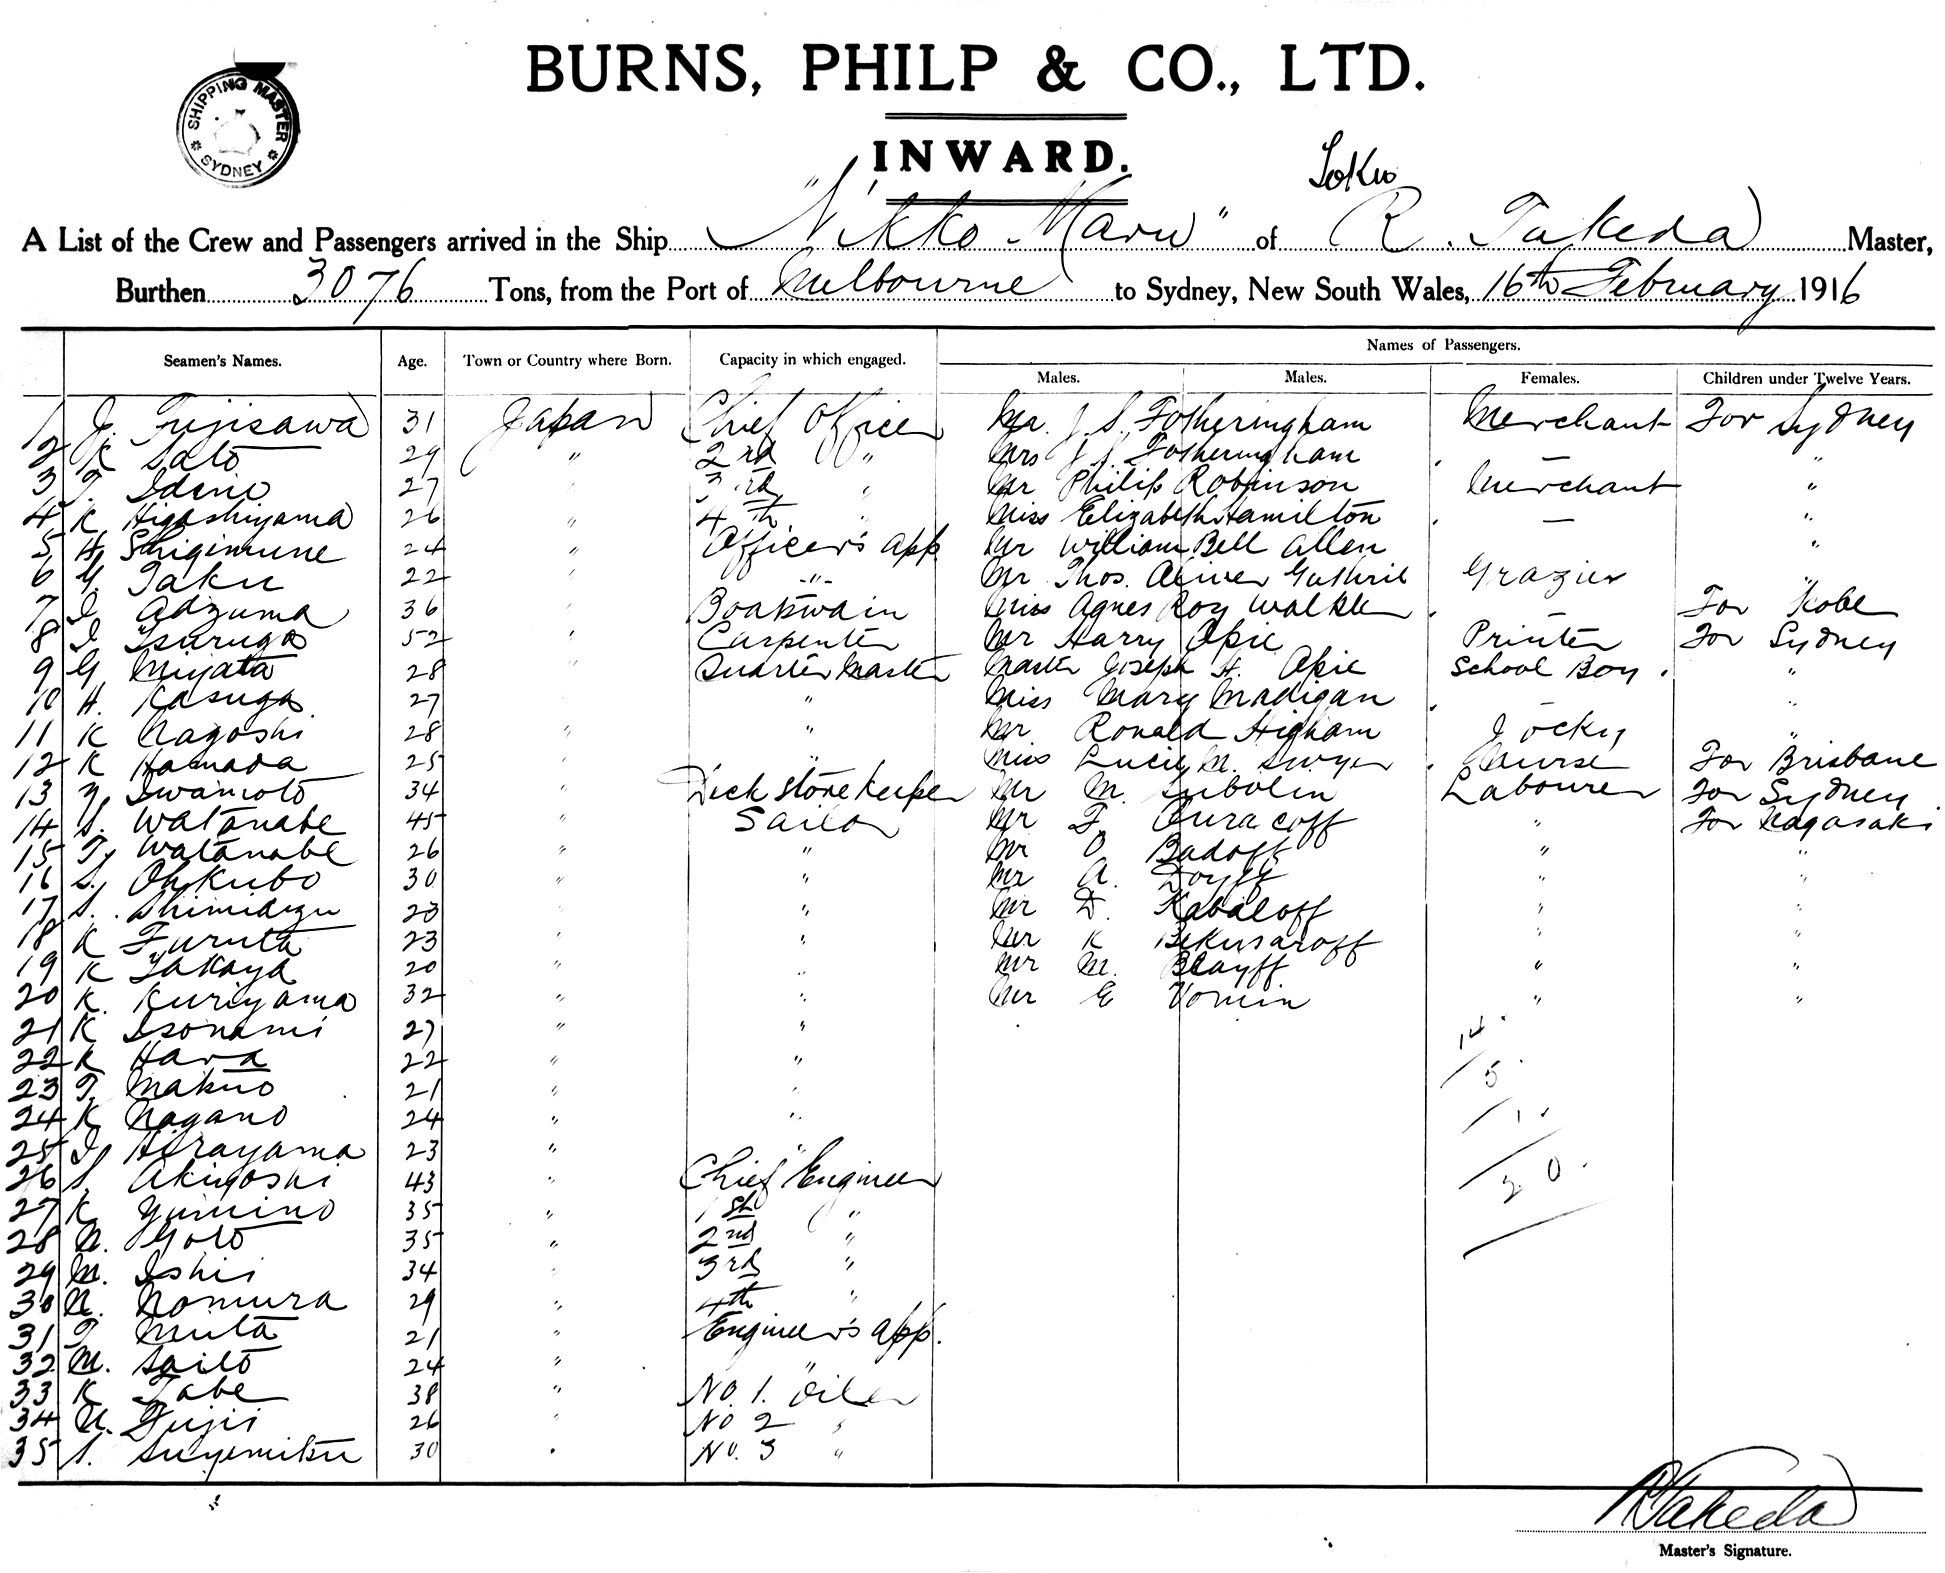 BURNS, PHILP & CO., LTD.
SHIPPING MASTER
SYDNEY
INWARD.
Tokio
A List of the Crew and Passengers arrived in the Ship "Nikko Maru" of R. Takeda Master,
Burthen 3076 Tons, from the Port of Melbourne to Sydney, New South Wales, 16th February 1916
Names of Passengers.
Seamen's Names. Age. Town or Country where Born. Capacity in which engaged. Males. Males. Females. Children under Twelve Years.
1 J. Fujisawa 31 Japan Chief Officer Mr. J. S. Fotheringham Merchant For Sydney
2 K Sato 29 " 2nd " Mrs J. S. Fotheringham — "
3 T. Ideno 27 3rd " Mr Philip Robinson Merchant "
4 K Higashiyama 26 " 4th " Miss Elizabeth Hamilton — "
5 H. Shigimune 24 " Officer's app Mr William Bell Allen "
6 Y. Taku 22 " -"- Mr Thos. Oliver Guthrie Grazier "
7 I. Adzuma 36 " Boatswain Miss Agnes Roy Walkle For Kobe
8 I Tsuruga 52 " Carpenter Mr Harry Opie Printer For Sydney
9 Y Miyata 28 " Quarter Master Master Joseph H. Opie School Boy. "
10 H. Kasuga 27 " Miss Mary Madigan - "
11 K Nagoshi 28 " " Mr Ronald Higham Jocky "
12 K Hamada 25 " Miss Lucie M. Dwyer Nurse For Brisbane
13 Y. Iwamoto 34 " Deck storekeeper Mr M. Labourer For Sydney
14 S. Watanabe 45 " Sailor Mr F. " For Nagasaki
15 T. Watanabe 26 " " Mr O Badoff " "
16 S. Ohkubo 30 " " Mr A. Doyff " "
17 S. Shimidzu 23 " " Mr D. Kabaloff " "
18 K Furuta 23 " " Mr K Bekusaroff " "
19 K Takaya 20 " " Mr M. Blayff " "
20 K. Kuriyama 32 " " Mr E Vomin " "
21 K Isonami 27 " "
22 K Hara 22 " "
23 T. Makino 21 " "
24 K Nagano 24 " "
25 I. Hirayama 23 " "
26 S. Akiyoshi 43 " Chief Engineer
27 K Yumino 35 " 1st "
28 N. Goto 35 " 2nd "
29 M. Ishii 34 " 3rd "
30 N. Nomura 29 " 4th "
31 T. Muta 21 " Engineer's app.
32 M. Saito 24 " "
33 K Tabe 38 " No. 1. Oiler
34 N. Fujii 26 " No 2 "
35 S. Suyemitsu 30 " No. 3 "
14
5
1
20
R Takeda
Master's Signature.